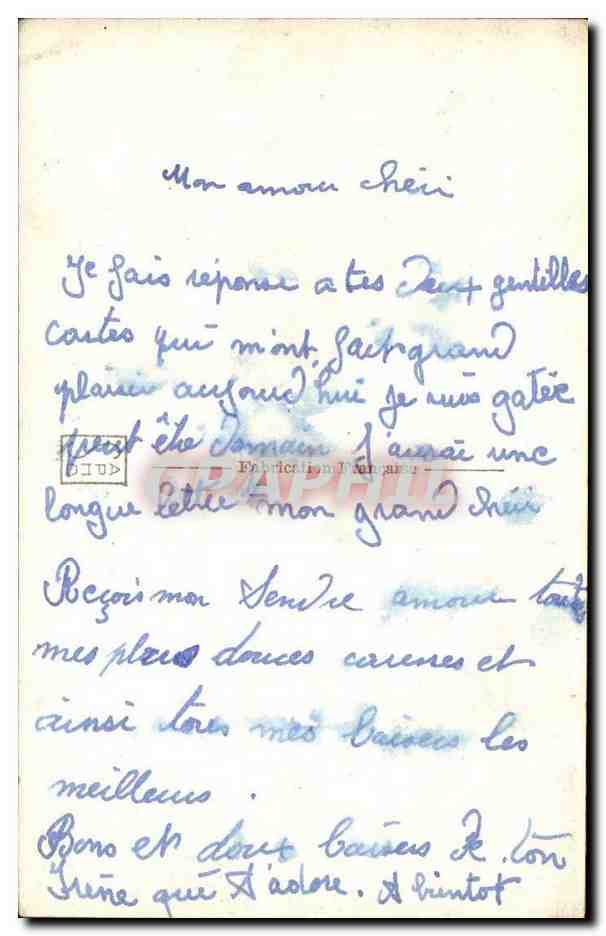 Mon amour chéri
Je fais réponse a tes deux gentilles
cartes qui m'ont fait grand
plaisir aujourd'hui je suis gatée
peut être Demain j'aurai une
Fabrication Française
longue lettre mon grand chéri
Reçois mon tendre amour toutes
mes plus douces caresses et
ainsi tous mes baisers les
meilleurs.
Bons et doux baisers De ton
Irène qui t'adore. A bientot